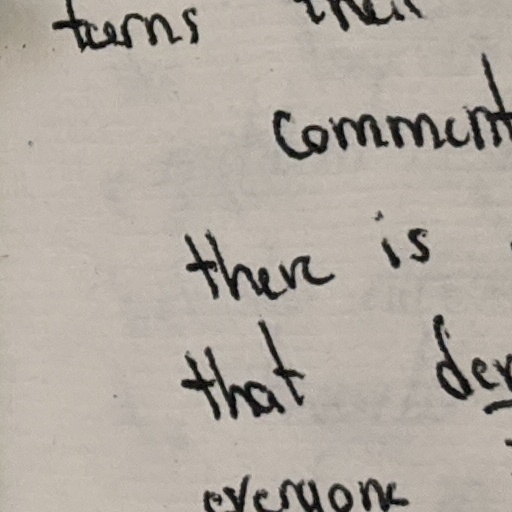 turns their
comment
there is
that der
everyone